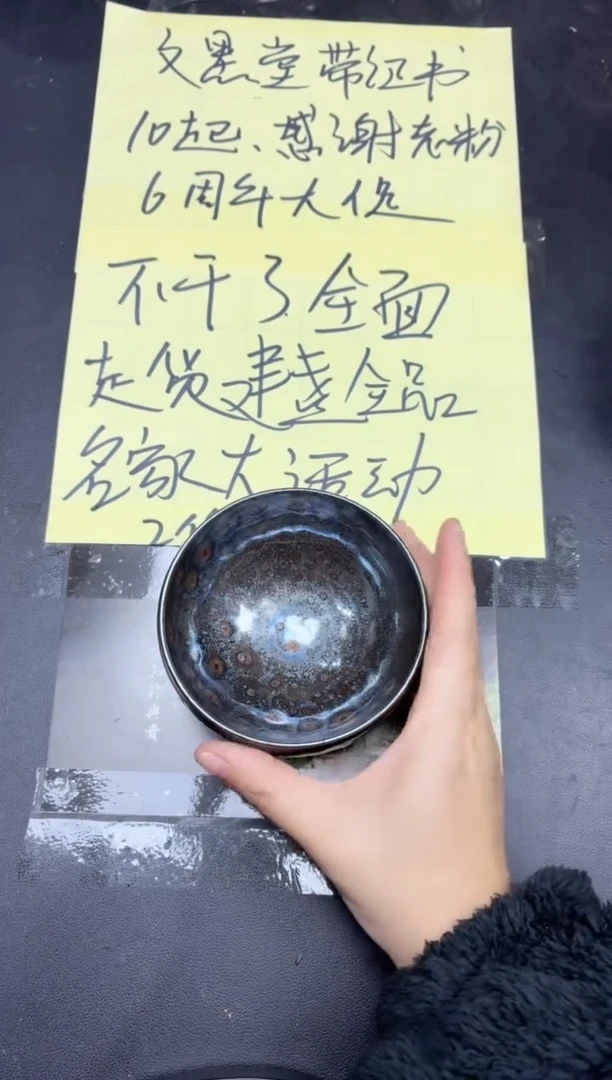 文墨堂带证书
10起、感谢老粉
6周年大促
不干了全面
走货建盏全品
名家大活动